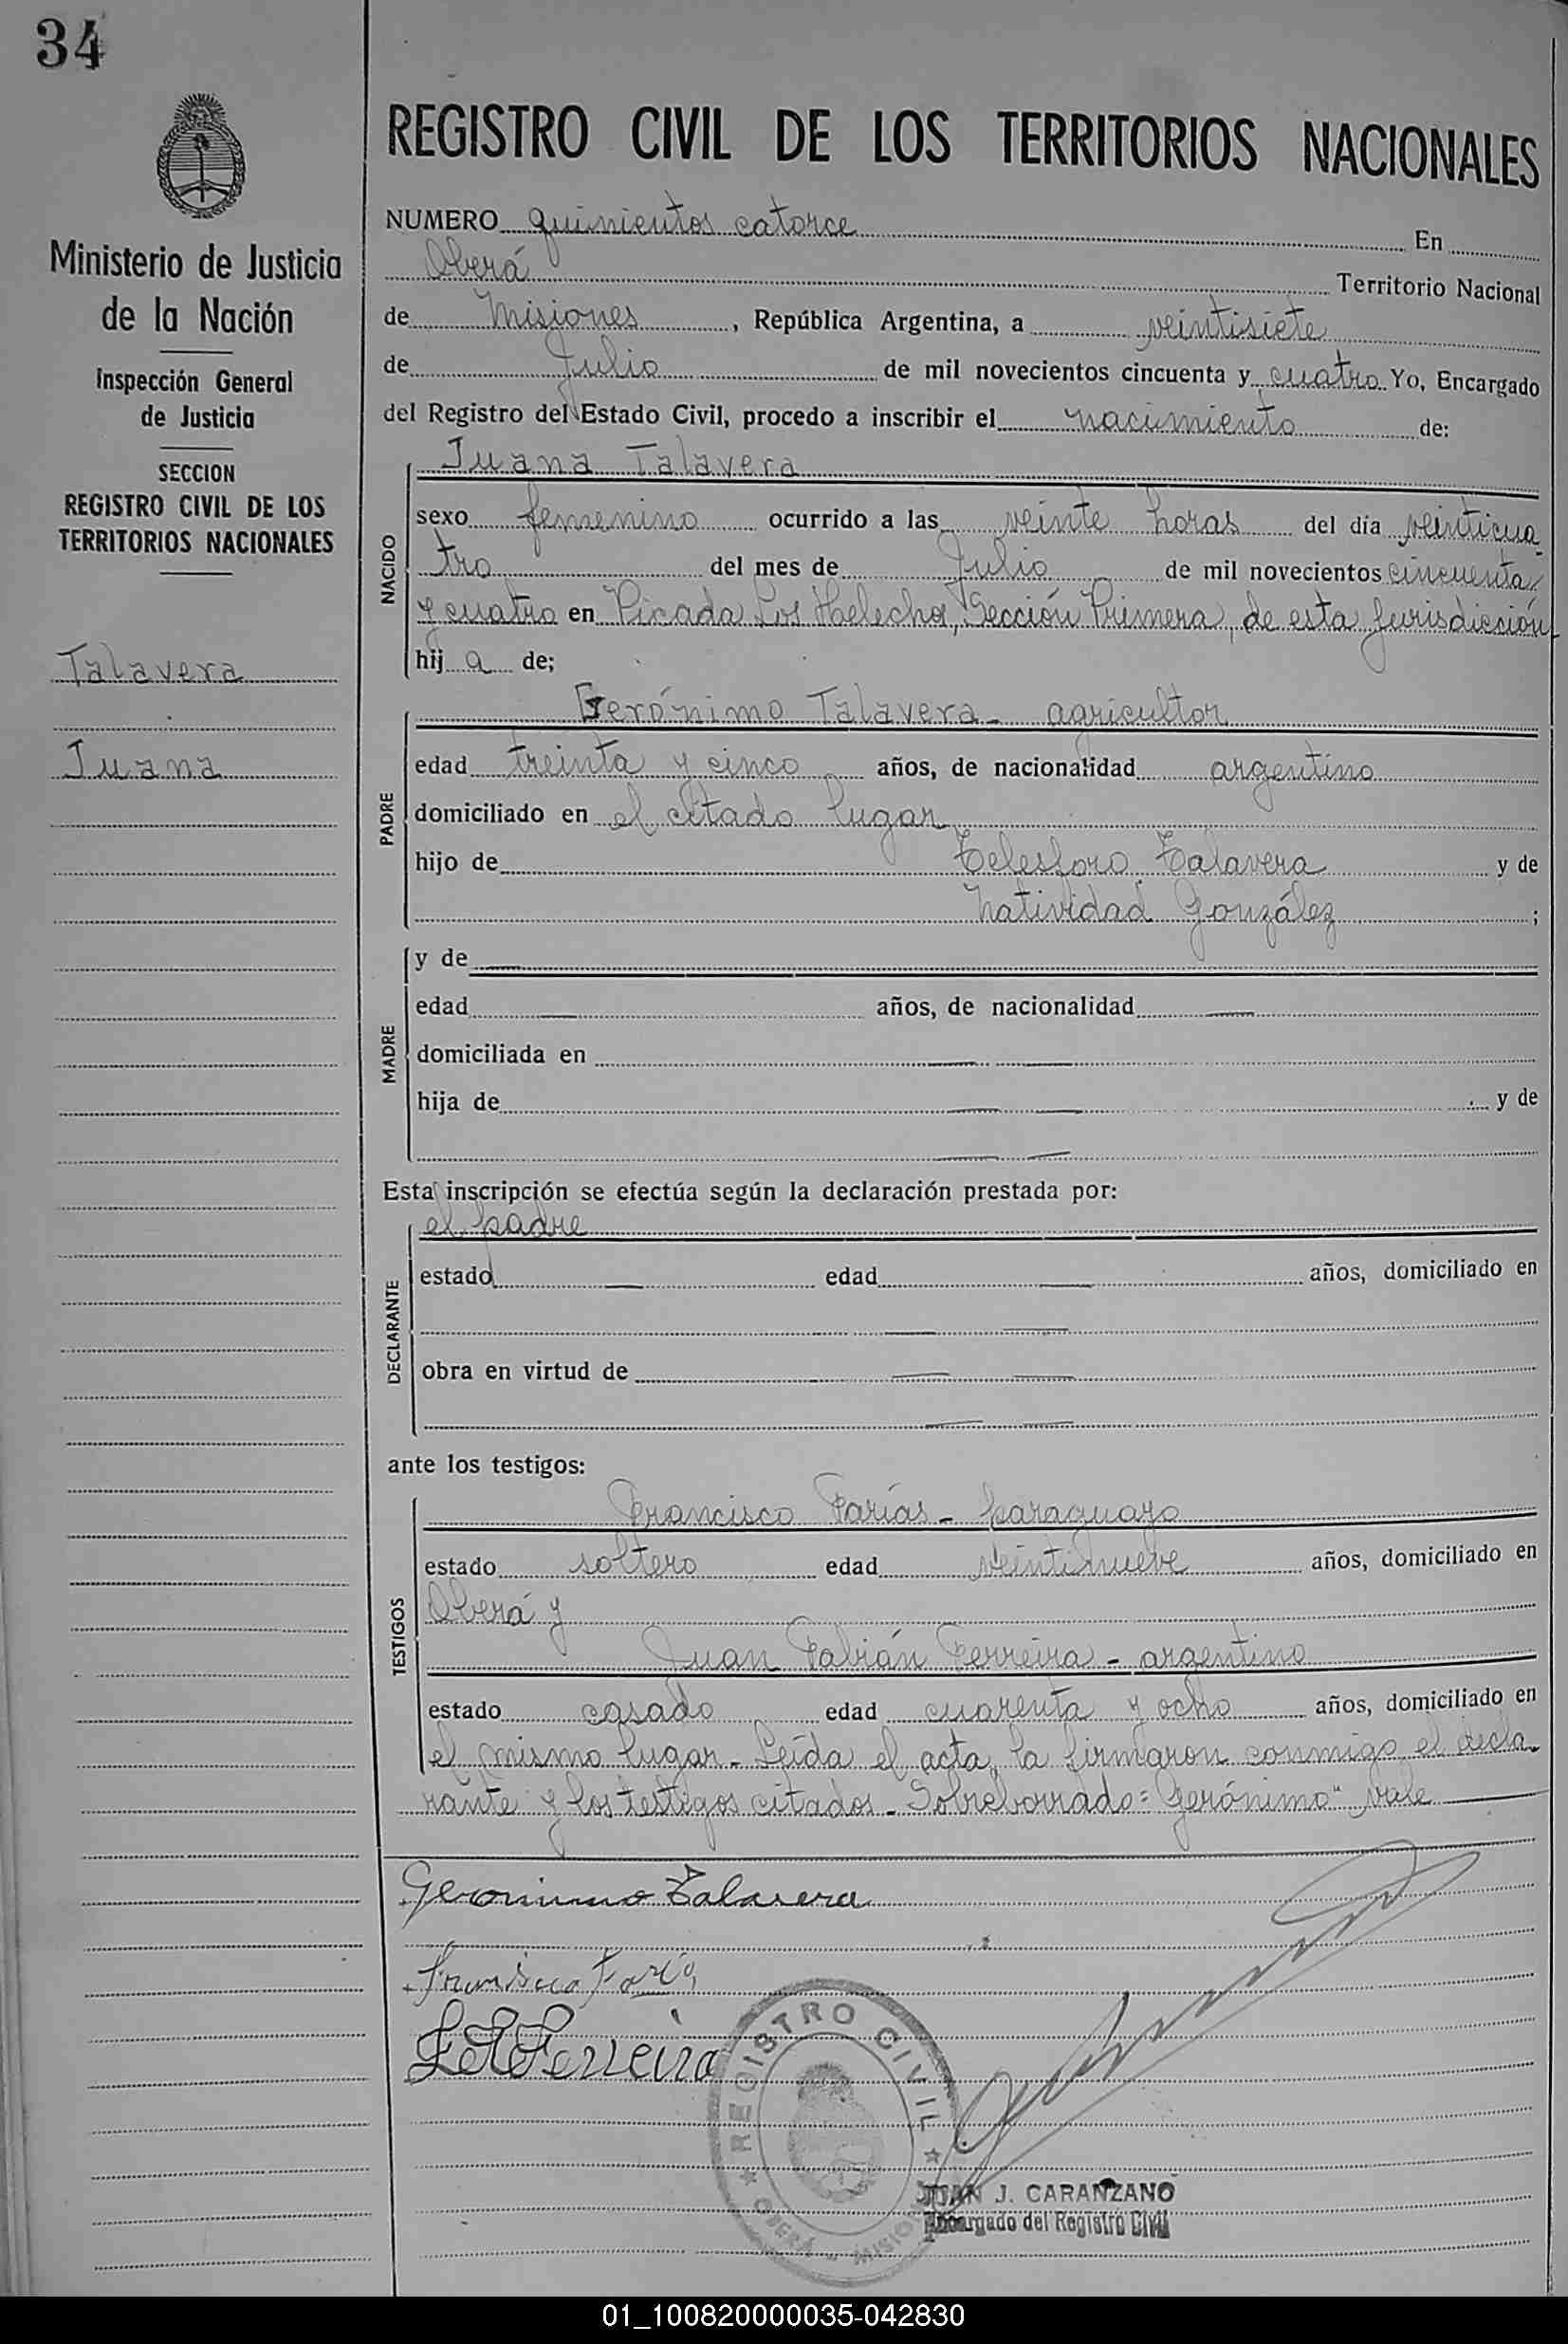 34
Ministerio de Justicia
de la Nación
Inspección General
de Justicia
SECCION
REGISTRO CIVIL DE LOS
TERRITORIOS NACIONALES
Talavera
Juana
REGISTRO CIVIL DE LOS TERRITORIOS NACIONALES
NUMERO quinientos catorce En
Oberá Territorio Nacional
de Misiones, República Argentina, a veintisiete
de Julio de mil novecientos cincuenta y cuatro Yo, Encargado
del Registro del Estado Civil, procedo a inscribir el nacimiento de:
Juana Talavera
NACIDO
sexo femenino ocurrido a las veinte horas del día veinticua
tro del mes de Julio de mil novecientos cincuenta
y cuatro en Picada Los Helechos, Sección Primera, de esta jurisdicción
hij a de;
Gerónimo Talavera - agricultor
PADRE
edad treinta y cinco años, de nacionalidad argentino
domiciliado en el citado lugar
hijo de Telesforo Talavera y de
Natividad González ;
MADRE
y de
edad años, de nacionalidad
domiciliada en
hija de y de
Esta inscripción se efectúa según la declaración prestada por:
el padre
DECLARANTE
estado edad años, domiciliado en
obra en virtud de
ante los testigos:
Francisco Farías - paraguayo
TESTIGOS
estado soltero edad veintinueve años, domiciliado en
Oberá y
Juan Fabián Ferreira - argentino
estado casado edad cuarenta y ocho años, domiciliado en
el mismo lugar - Leída el acta, la firmaron conmigo el decla-
rante y los testigos citados - Sobreborrado: "Gerónimo" vale
Geronimo Talavera
Francisco Farías
Ferreira
REGISTRO CIVIL
OBERÁ - MISIONES
JUAN J. CARANZANO
Encargado del Registro Civil
01_100820000035-042830